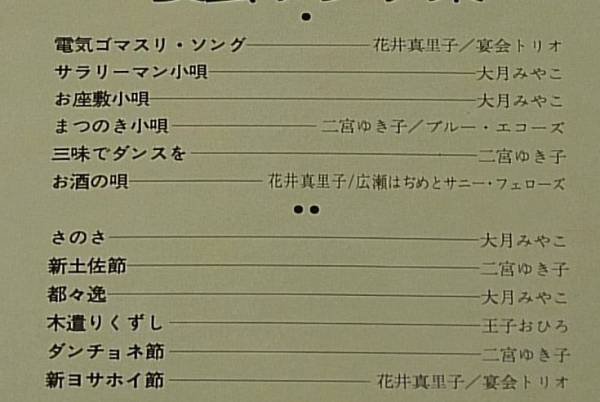 ●
電気ゴマスリ・ソング 花井真里子／宴会トリオ
サラリーマン小唄 大月みやこ
お座敷小唄 大月みやこ
まつのき小唄 二宮ゆき子／ブルー・エコーズ
三味でダンスを 二宮ゆき子
お酒の唄 花井真里子/広瀬はぢめとサニー・フェローズ
●●
さのさ 大月みやこ
新土佐節 二宮ゆき子
都々逸 大月みやこ
木遣りくずし 王子おひろ
ダンチョネ節 二宮ゆき子
新ヨサホイ節 花井真里子／宴会トリオ